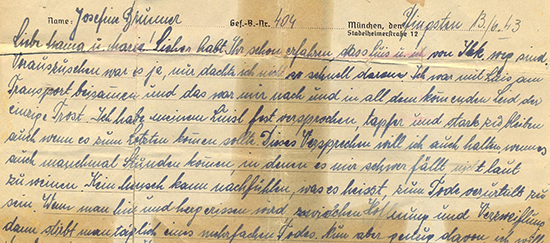 Name: Josefine Brunner Gef.-B.-Nr. 404 München, den Pfingsten 13/6.43
Stadelheimerstraße 12
Liebe Mama u. Maria. Sicher habt Ihr schon erfahren dass Luis u. ich von Ibk. weg sind.
Vorauszusehen war es ja, nur dachte ich nicht so schnell daran. Ich war mit Luis am
Transport beisamen und das war mir nach und in all dem komenden Leid der
einzige Trost. Ich habe meinem Luisl fest versprochen, tapfer und stark zu bleiben
auch wenn es zum Letzten komen sollte. Dieses Versprechen will ich auch halten, wenn es
auch manchmal Stunden komen, in denen es mir schwer fällt nicht laut
zu weinen. Kein Mensch kann nachfühlen, was es heisst, zum Tode verurteilt zu
sein. Wenn man hin und hergerissen wird zwischen Hoffnung und Verzweiflung
dann stirbt man täglich eines mehrfachen Todes. Nun aber genug davon, ich will